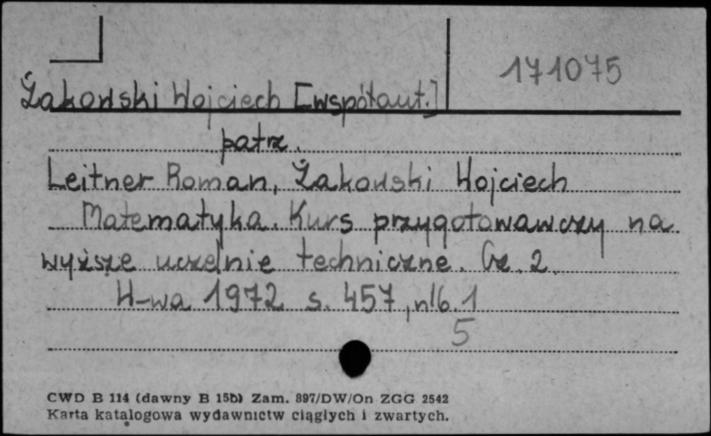 171075
Żakowski Wojciech [współaut.]
patrz.
Leitner Roman, Żakowski Wojciech
Matematyka. Kurs przygotowawczy na
wyższe uczelnie techniczne. Cz. 2
W-wa 1972 s. 457, nlb. 1
5
CWD B 114 (dawny B 15b) Zam. 897/DW/On ZGG 2542
Karta katalogowa wydawnictw ciągłych i zwartych.